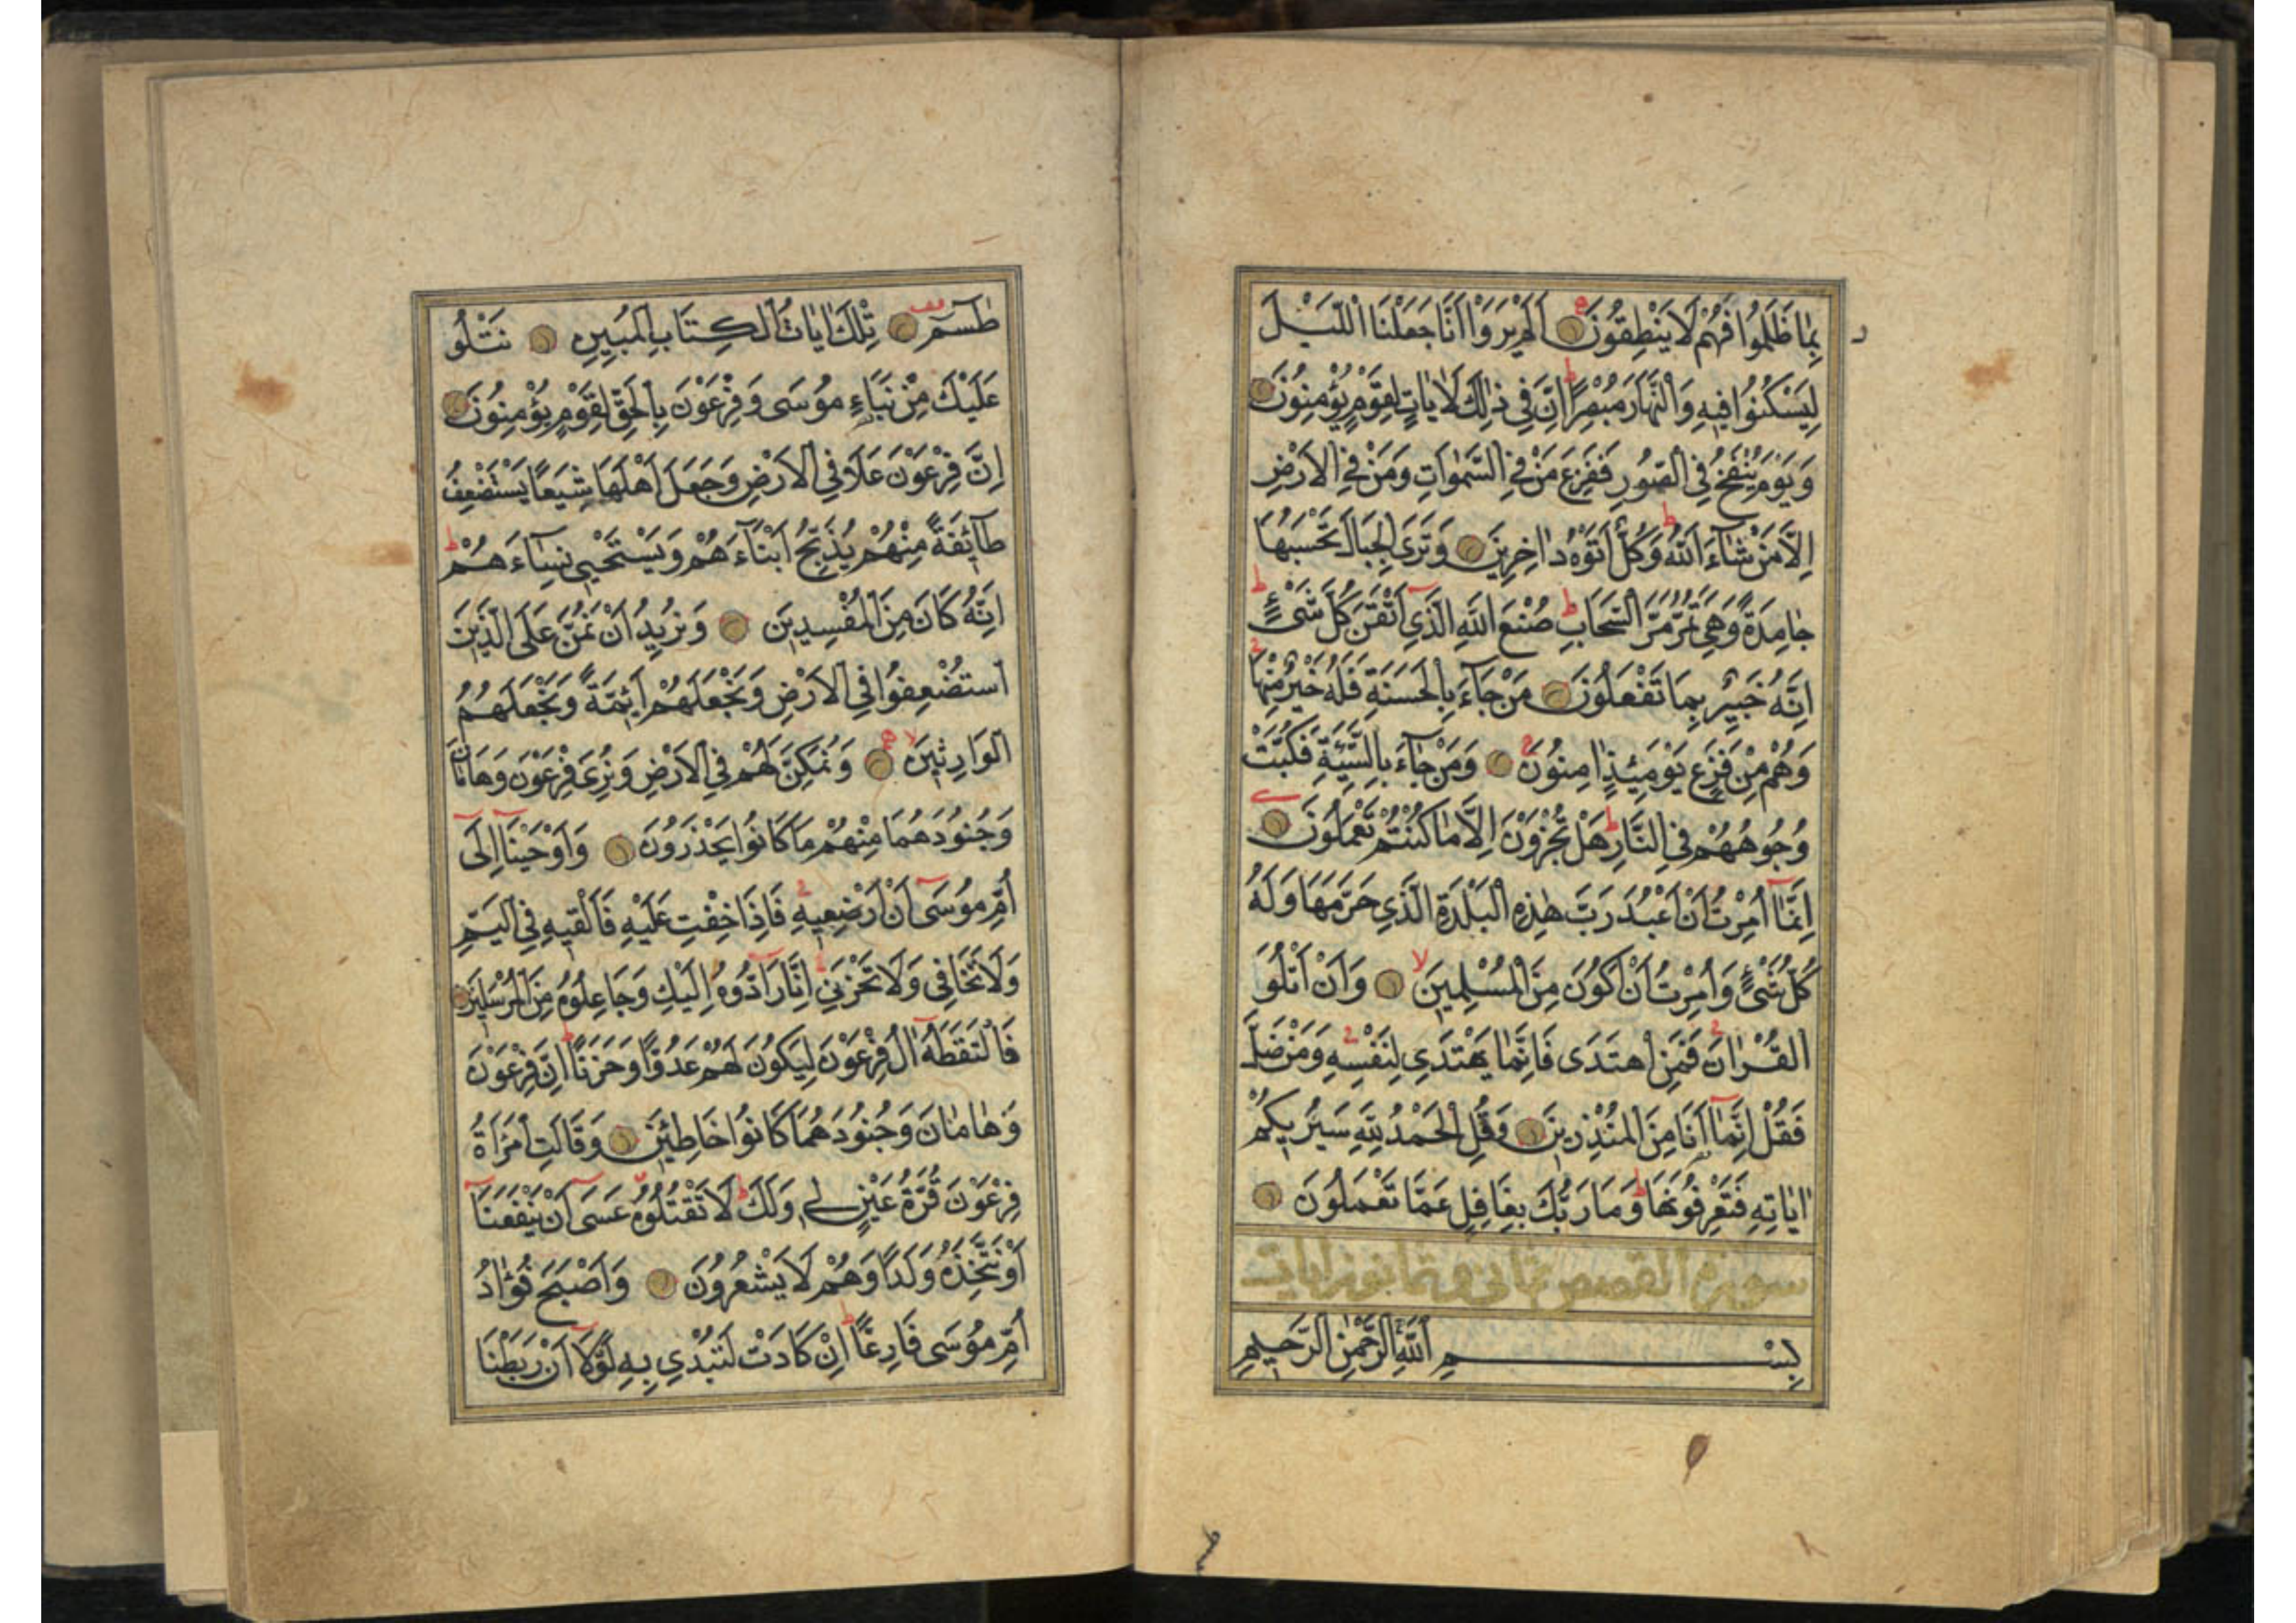 بِمَا ظَلَمُوا فَهُمْ لَا يَنْطِقُونَ اَلَمْ يَرَوْا اَنَّا جَعَلْنَا الَّيْلَ
لِيَسْكُنُوا فِيهِ وَالنَّهَارَ مُبْصِرًا اِنَّ فِي ذٰلِكَ لَاٰيَاتٍ لِقَوْمٍ يُؤْمِنُونَ
وَيَوْمَ يُنْفَخُ فِي الصُّورِ فَفَزِعَ مَنْ فِي السَّمٰوَاتِ وَمَنْ فِي الْاَرْضِ
اِلَّا مَنْ شَاءَ اللّٰهُ وَكُلٌّ اَتَوْهُ دَاخِرِينَ وَتَرَى الْجِبَالَ تَحْسَبُهَا
جَامِدَةً وَهِيَ تَمُرُّ مَرَّ السَّحَابِ صُنْعَ اللّٰهِ الَّذِي اَتْقَنَ كُلَّ شَيْءٍ
اِنَّهُ خَبِيرٌ بِمَا تَفْعَلُونَ مَنْ جَاءَ بِالْحَسَنَةِ فَلَهُ خَيْرٌ مِنْهَا
وَهُمْ مِنْ فَزَعٍ يَوْمَئِذٍ اٰمِنُونَ وَمَنْ جَاءَ بِالسَّيِّئَةِ فَكُبَّتْ
وُجُوهُهُمْ فِي النَّارِ هَلْ تُجْزَوْنَ اِلَّا مَا كُنْتُمْ تَعْمَلُونَ
اِنَّمَا اُمِرْتُ اَنْ اَعْبُدَ رَبَّ هٰذِهِ الْبَلْدَةِ الَّذِي حَرَّمَهَا وَلَهُ
كُلُّ شَيْءٍ وَاُمِرْتُ اَنْ اَكُونَ مِنَ الْمُسْلِمِينَ وَاَنْ اَتْلُوَ
الْقُرْاٰنَ فَمَنِ اهْتَدَى فَاِنَّمَا يَهْتَدِي لِنَفْسِهِ وَمَنْ ضَلَّ
فَقُلْ اِنَّمَا اَنَا مِنَ الْمُنْذِرِينَ وَقُلِ الْحَمْدُ لِلّٰهِ سَيُرِيكُمْ
اٰيَاتِهِ فَتَعْرِفُونَهَا وَمَا رَبُّكَ بِغَافِلٍ عَمَّا تَعْمَلُونَ
سورة القصص ثمانى وثمانون ايات
بِسْمِ اللّٰهِ الرَّحْمٰنِ الرَّحِيمِ
طٰسٓمٓ تِلْكَ اٰيَاتُ الْكِتَابِ الْمُبِينِ نَتْلُو
عَلَيْكَ مِنْ نَبَاءِ مُوسَى وَفِرْعَوْنَ بِالْحَقِّ لِقَوْمٍ يُؤْمِنُونَ
اِنَّ فِرْعَوْنَ عَلَا فِي الْاَرْضِ وَجَعَلَ اَهْلَهَا شِيَعًا يَسْتَضْعِفُ
طَائِفَةً مِنْهُمْ يُذَبِّحُ اَبْنَاءَهُمْ وَيَسْتَحْيِي نِسَاءَهُمْ
اِنَّهُ كَانَ مِنَ الْمُفْسِدِينَ وَنُرِيدُ اَنْ نَمُنَّ عَلَى الَّذِينَ
اسْتُضْعِفُوا فِي الْاَرْضِ وَنَجْعَلَهُمْ اَئِمَّةً وَنَجْعَلَهُمُ
الْوَارِثِينَ وَنُمَكِّنَ لَهُمْ فِي الْاَرْضِ وَنُرِيَ فِرْعَوْنَ وَهَامَانَ
وَجُنُودَهُمَا مِنْهُمْ مَا كَانُوا يَحْذَرُونَ وَاَوْحَيْنَا اِلَى
اُمِّ مُوسَى اَنْ اَرْضِعِيهِ فَاِذَا خِفْتِ عَلَيْهِ فَاَلْقِيهِ فِي الْيَمِّ
وَلَا تَخَافِي وَلَا تَحْزَنِي اِنَّا رَادُّوهُ اِلَيْكِ وَجَاعِلُوهُ مِنَ الْمُرْسَلِينَ
فَالْتَقَطَهُ اٰلُ فِرْعَوْنَ لِيَكُونَ لَهُمْ عَدُوًّا وَحَزَنًا اِنَّ فِرْعَوْنَ
وَهَامَانَ وَجُنُودَهُمَا كَانُوا خَاطِئِينَ وَقَالَتِ امْرَاَةُ
فِرْعَوْنَ قُرَّةُ عَيْنٍ لِي وَلَكَ لَا تَقْتُلُوهُ عَسَى اَنْ يَنْفَعَنَا
اَوْ نَتَّخِذَهُ وَلَدًا وَهُمْ لَا يَشْعُرُونَ وَاَصْبَحَ فُؤَادُ
اُمِّ مُوسَى فَارِغًا اِنْ كَادَتْ لَتُبْدِي بِهِ لَوْلَا اَنْ رَبَطْنَا